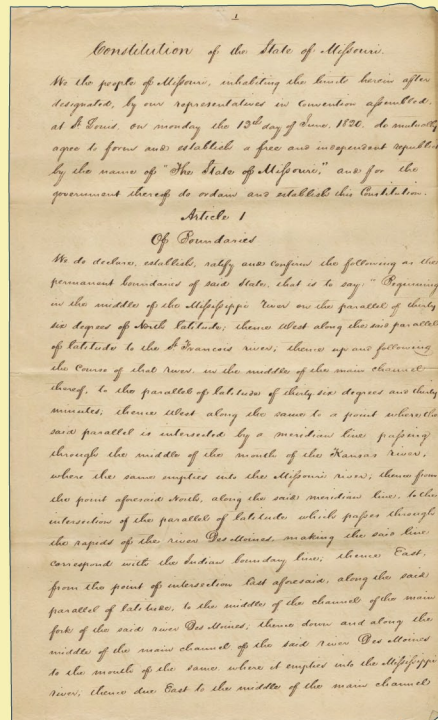 1
Constitution of the State of Missouri.
We the people of Missouri, inhabiting the limits herein after
designated, by our representatives in Convention assembled,
at St Louis, on monday the 12th day of June, 1820, do mutually
agree to form and establish a free and independent republic
by the name of "The State of Missouri," and for the
government thereof do ordain and establish this Constitution.
Article 1
Of Boundaries
We do declare, establish, ratify and confirm the following as the
permanent boundaries of said State, that is to say: "Beginning
in the middle of the Mississippi river on the parallel of thirty
six degrees of North latitude; thence West along the said parallel
of latitude to the St Francois river; thence up and following
the course of that river, in the middle of the main channel
thereof, to the parallel of latitude of thirty six degrees and thirty
minutes, thence West along the same to a point where the
said parallel is intersected by a meridian line passing
through the middle of the mouth of the Kansas river,
where the same empties into the Missouri river; thence from
the point aforesaid North, along the said meridian line, to the
intersection of the parallel of latitude which passes through
the rapids of the river Des Moines, making the said line
correspond with the Indian boundary line; thence East,
from the point of intersection last aforesaid, along the said
parallel of latitude, to the middle of the channel of the main
fork of the said river Des Moines; thence down and along the
middle of the main channel of the said river Des Moines
to the mouth of the same where it empties into the Mississippi
river; thence due East to the middle of the main channel